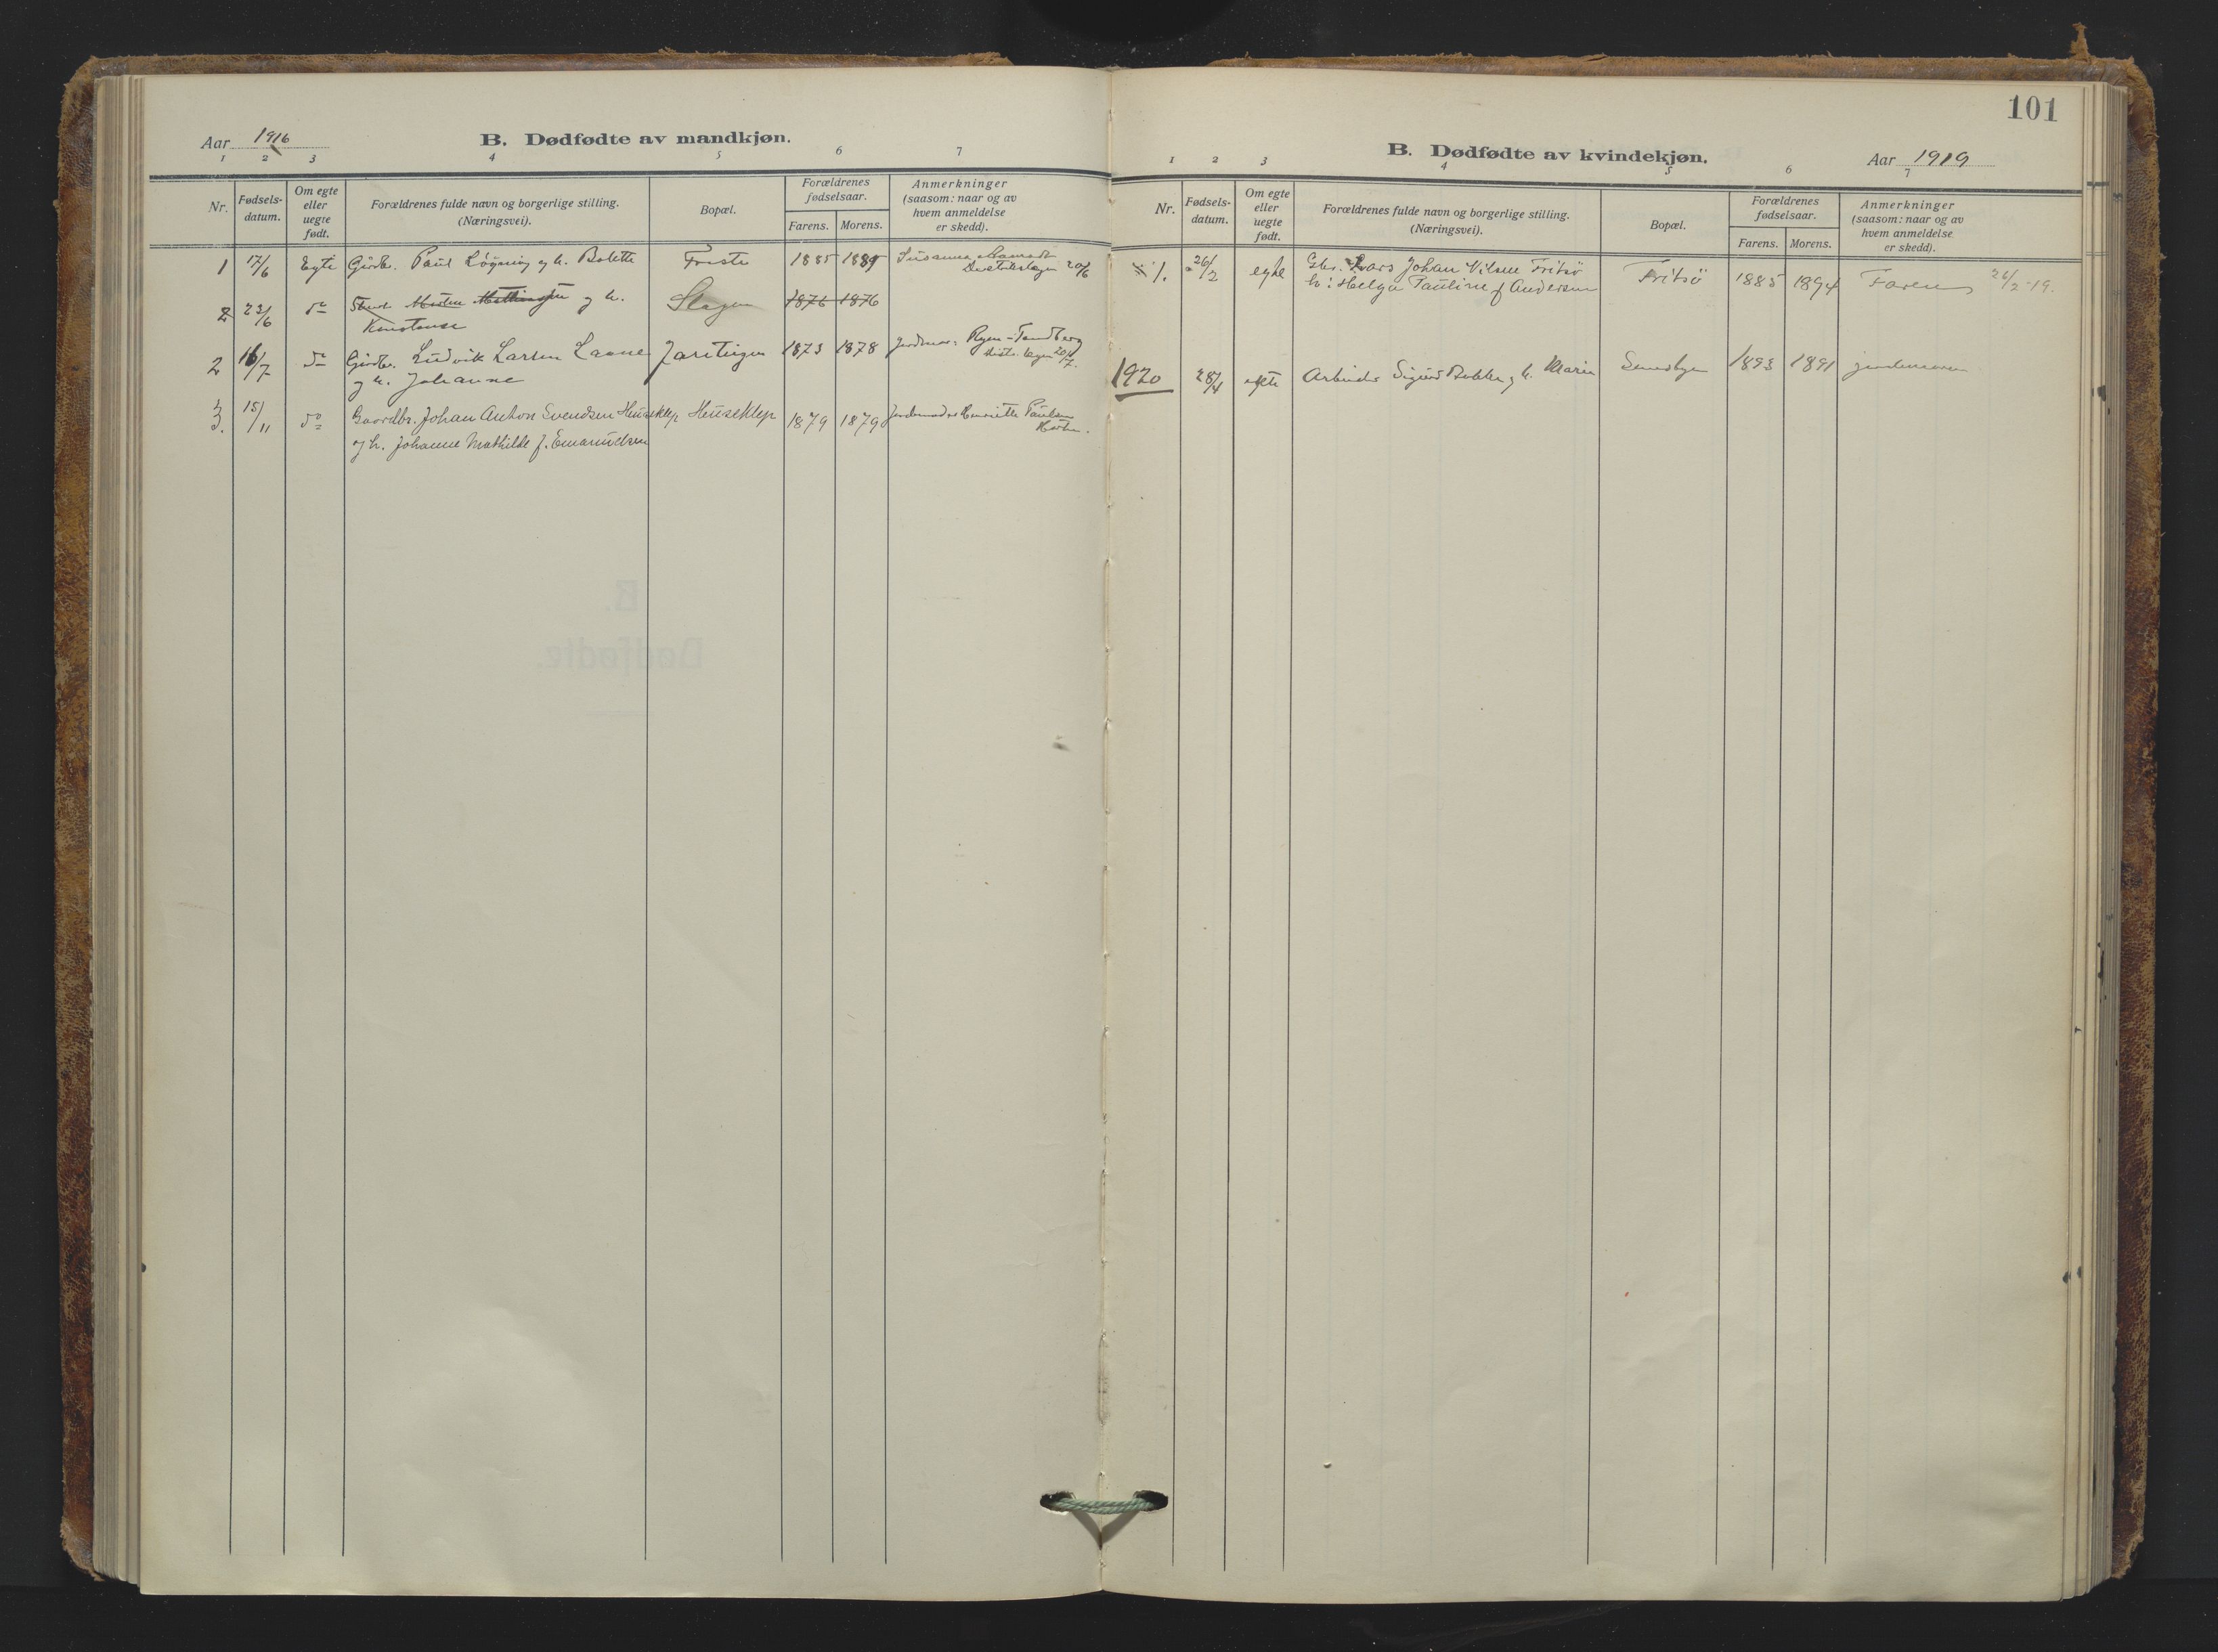 Aar 1916
B. Dødfødte av mandkjøn.
1 2 3 4 5 6 7
Nr. Fødsels-datum. Om egte eller uegte født. Forældrenes fulde navn og borgerlige stilling. (Næringsvei). Bopæl. Forældrenes fødselsaar. Farens. Morens. Anmerkninger (saasom: naar og av hvem anmeldelse er skedd).
1 17/6 Egte Grdbr. Paul Løyning og h. Bolette 1885 1889
20/6
2 23/6 do og h. Slagen 1876 1876
Konstanse
2 16/7 do Grdbr. Ludvik Larsen 1873 1878 Jordmor
og h. Johanne
20/7.
3. 15/11 do Gaardbr. Johan Anton Svendsen Huseklep Huseklep 1879 1879 Jordmoder Henriette Paulsen
og h. Johanne Mathilde f. Emanuelsen
101
B. Dødfødte av kvindekjøn.
Aar 1919
1 2 3 4 5 6 7
Nr. Fødsels-datum. Om egte eller uegte født. Forældrenes fulde navn og borgerlige stilling. (Næringsvei). Bopæl. Forældrenes fødselsaar. Farens. Morens. Anmerkninger (saasom: naar og av hvem anmeldelse er skedd).
1. 26/2 egte Gbr. Lars Johan Nilsen Fritsø Fritsø 1885 1894 Faren 26/2-19.
h: Helga Pauline f Andersen
1920 28/4 egte Arbeider Sigurd Bakke og h. Marie 1893 1891 jordmoren
B.
Dødfødte.